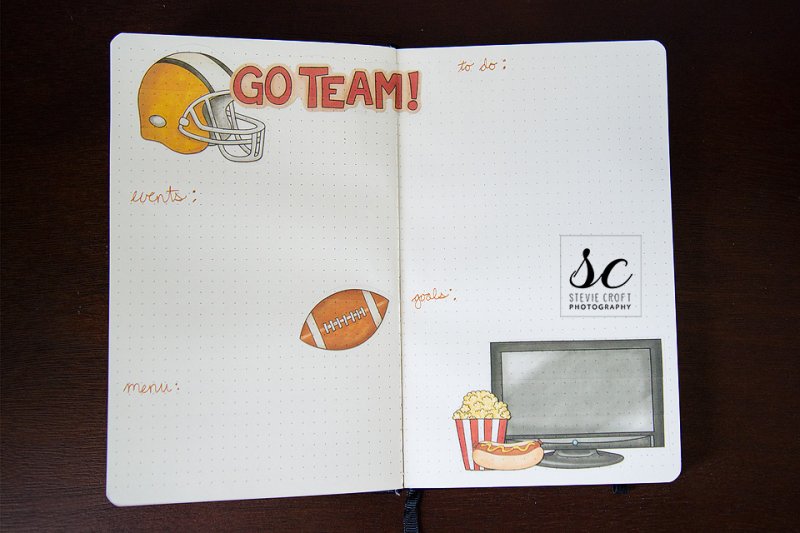 GO TEAM!
events:
menu:
to do:
goals:
sc
STEVIE CROFT
PHOTOGRAPHY